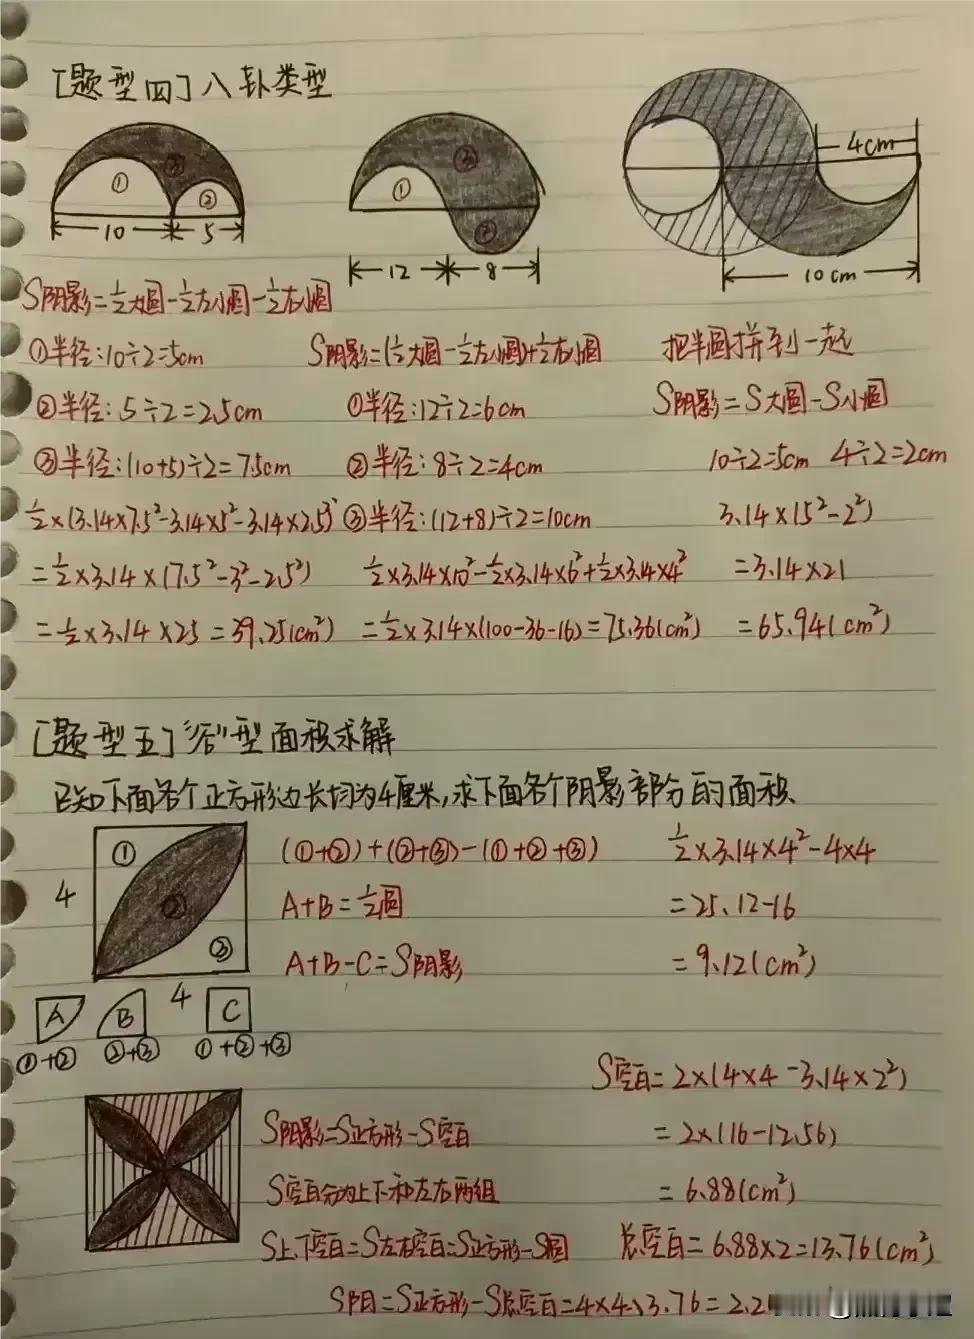 [题型四]八卦类型
① ② ③
10 5
① ② ③
12 8
4cm
10cm
S阴影=½大圆-½左小圆-½右小圆
①半径:10÷2=5cm
②半径:5÷2=2.5cm
③半径:(10+5)÷2=7.5cm
½×(3.14×7.5²-3.14×5²-3.14×2.5²)
=½×3.14×(7.5²-3²-2.5²)
=½×3.14×25=39.25(cm²)
S阴影=(½大圆-½左小圆)+½右小圆
①半径:12÷2=6cm
②半径:8÷2=4cm
③半径:(12+8)÷2=10cm
½×3.14×10²-½×3.14×6²+½×3.14×4²
=½×3.14×(100-36-16)=75.36(cm²)
把半圆拼到一起
S阴影=S大圆-S小圆
10÷2=5cm 4÷2=2cm
3.14×(5²-2²)
=3.14×21
=65.94(cm²)
[题型五]"谷"型面积求解
已知下面各个正方形边长均为4厘米,求下面各个阴影部分的面积.
① ② ③
4
4
A B C
①+② ②+③ ①+②+③
(①+②)+(②+③)-(①+②+③)
A+B=½圆
A+B-C=S阴影
½×3.14×4²-4×4
=25.12-16
=9.12(cm²)
S空白=2×(4×4-3.14×2²)
=2×(16-12.56)
=6.88(cm²)
S阴影=S正方形-S空白
S空白分为上下和左右两组
S上下空白=S左右空白=S正方形-S圆
总空白=6.88×2=13.76(cm²)
S阴=S正方形-S总空白=4×4-13.76=2.2